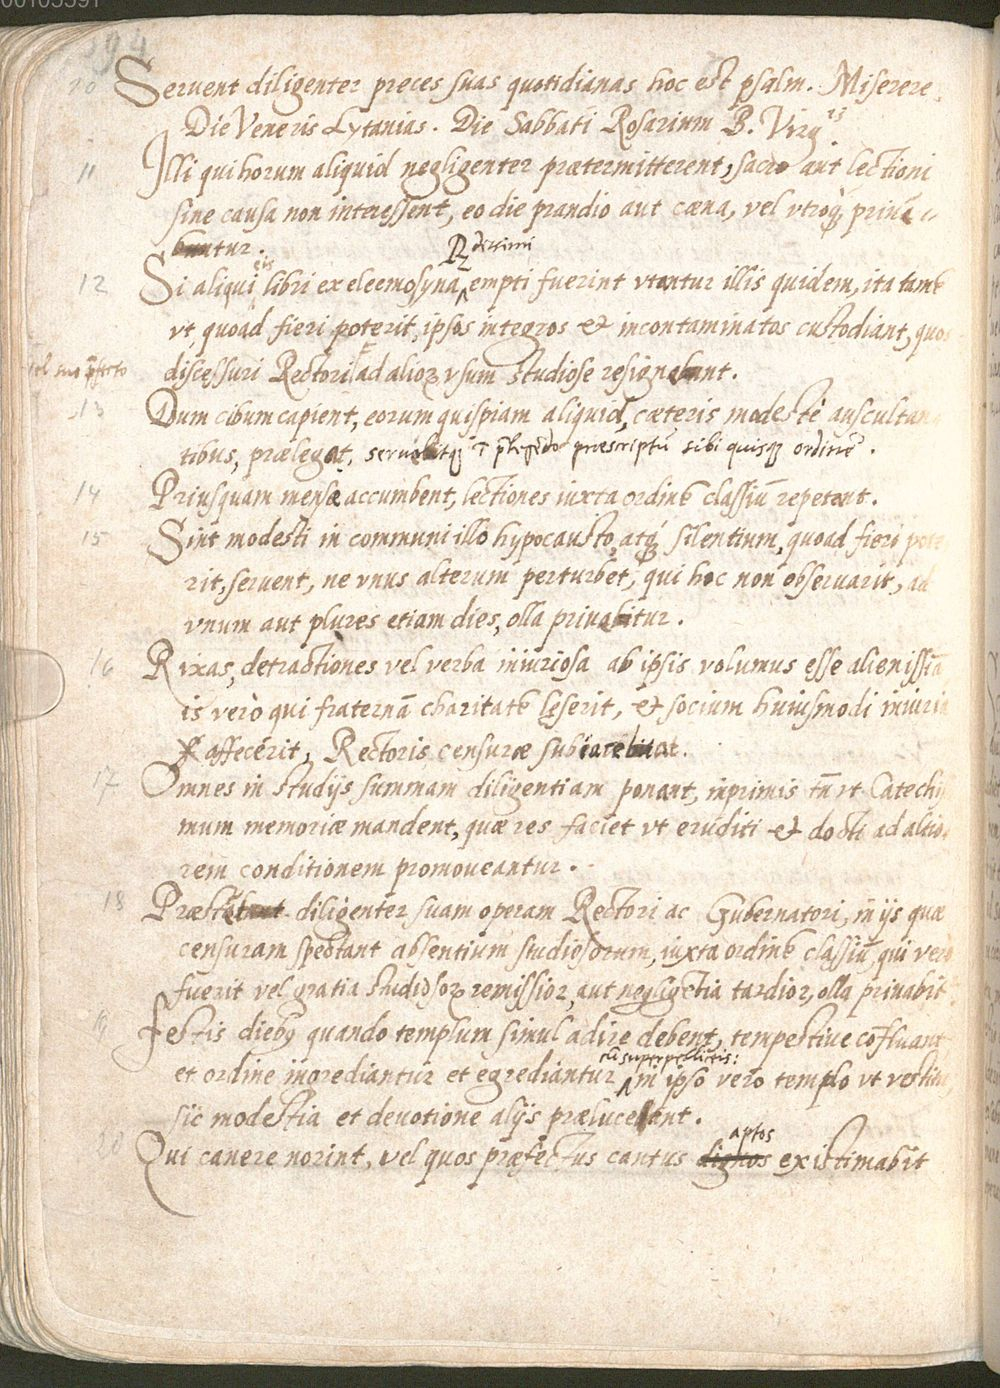 00105591
394
10 Servent diligenter preces suas quotidianas hoc est psalm. Miserere.
Die Veneris Lytanias. Die Sabbati Rosarium B. Virgis
11 Illi qui horum aliquid negligenter prætermitterent, sacro aut lectioni
sine causa non interessent, eo die prandio aut cæna, vel vtroq3 priua
buntur.
Rdissimi
12 Si aliqui eis libri ex eleemosyna empti fuerint vtantur illis quidem, ita tamē
vt quoad fieri poterit, ipsos integros et incontaminatos custodiant, quos
vel præfecto
discessuri Rectori ad alioꝝ vsum studiose resignent.
13 Dum cibum capient, eorum quispiam aliquid, cæteris modestè auscultan
tibus, prælegat, seruabitq3 ī præscriptū sibi quisq3 ordinē.
14 Priusquam mensæ accumbent, lectiones iuxta ordinē classiū repetent.
15 Sint modesti in communi illo hypocausto, atq3 silentium, quoad fieri pote
rit, servent, ne vnus alterum perturbet, qui hoc non observarit, ad
vnum aut plures etiam dies, olla priuabitur.
16 Rixas, detractiones vel verba iniuriosa ab ipsis volumus esse alienissima
is verò qui fraternā charitatē leserit, et socium huiusmodi iniuria
affecerit, Rectoris censuræ subiacebit.
17 Omnes in studijs summam diligentiam ponant, inprimis tn̄ vt Catechis
mum memoriæ mandent, quæ res faciet vt eruditi et docti ad altio
rem conditionem promoueantur.
18 Præstent diligenter suam operam Rectori ac Gubernatori, in ijs quæ
censuram spectant absentium studiosorum, iuxta ordinē classiū, qui vero
fuerit vel gratia studiosoꝝ remissior, aut negligētia tardior, olla priuabitur
19 Festis diebꝰ quando templum simul adire debent, tempestiue cōfluant
cū superpelliceis:
et ordine ingrediantur et egrediantur in ipso vero templo vt vestitu
sic modestia et deuotione alijs præluceant.
aptos
20 Qui canere norint, vel quos præfectus cantus dignos existimabit